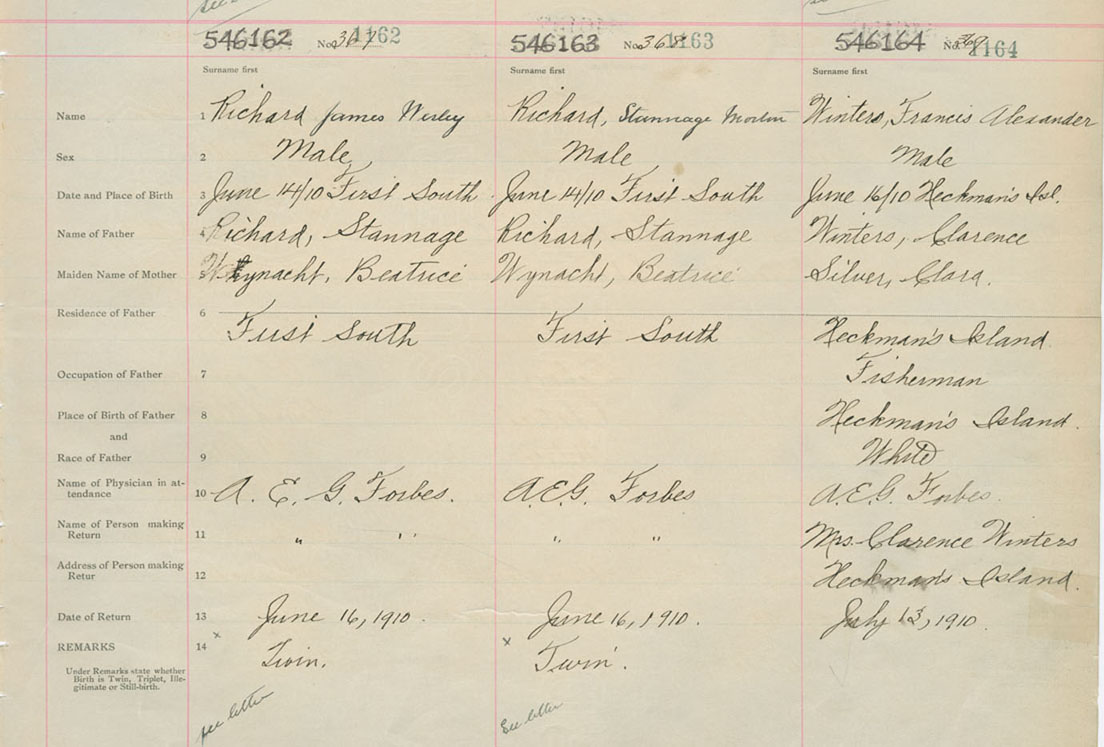 546162 No. 367 1162 546163 No. 368 1163 546164 No. 369 1164
Surname first Surname first Surname first
Name 1 Richard James Werley Richard, Stannage Morton Winters, Francis Alexander
Sex 2 Male Male Male
Date and Place of Birth 3 June 14/10 First South June 14/10 First South June 16/10 Heckman's Isl.
Name of Father 4 Richard, Stannage Richard, Stannage Winters, Clarence
Maiden Name of Mother Wynacht, Beatrice Wynacht, Beatrice Silver, Clara.
Residence of Father 6 First South First South Heckman's Island
Occupation of Father 7 Fisherman
Place of Birth of Father 8 Heckman's Island.
and
Race of Father 9 White
Name of Physician in at-
tendance 10 A. E. G. Forbes. A.E.G. Forbes A.E.G. Forbes.
Name of Person making
Return 11 " " " " Mrs. Clarence Winters
Address of Person making
Retur 12 Heckman's Island.
Date of Return 13 June 16, 1910. June 16, 1910. July 13, 1910.
REMARKS 14 x Twin. x Twin.
Under Remarks state whether
Birth is Twin, Triplet, Ille-
gitimate or Still-birth.
see letter See letter